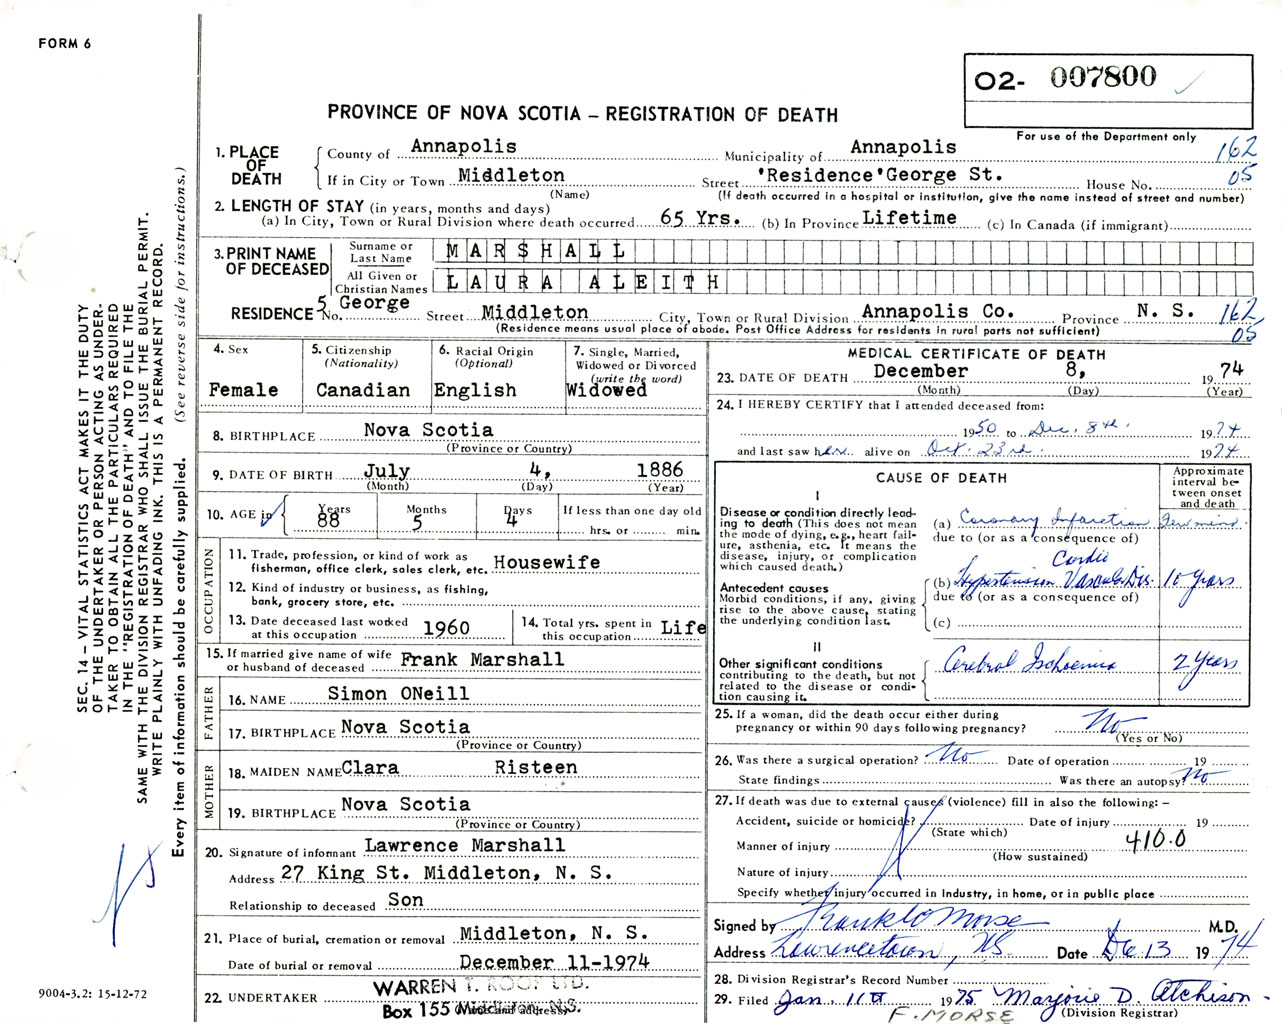 FORM 6
O2- 007800
PROVINCE OF NOVA SCOTIA – REGISTRATION OF DEATH
For use of the Department only
1. PLACE OF DEATH
County of Annapolis Municipality of Annapolis 162
If in City or Town Middleton Street 'Residence' George St. House No. 05
(Name) (If death occurred in a hospital or institution, give the name instead of street and number)
2. LENGTH OF STAY (in years, months and days)
(a) In City, Town or Rural Division where death occurred 65 Yrs. (b) In Province Lifetime (c) In Canada (if immigrant)
3. PRINT NAME OF DECEASED
Surname or Last Name MARSHALL
All Given or Christian Names LAURA ALEITH
RESIDENCE No. 5 George Street Middleton City, Town or Rural Division Annapolis Co. Province N. S. 162
(Residence means usual place of abode. Post Office Address for residents in rural parts not sufficient) 05
4. Sex
Female
5. Citizenship
(Nationality)
Canadian
6. Racial Origin
(Optional)
English
7. Single, Married,
Widowed or Divorced
(write the word)
Widowed
8. BIRTHPLACE Nova Scotia
(Province or Country)
9. DATE OF BIRTH July 4, 1886
(Month) (Day) (Year)
10. AGE in
Years 88 Months 5 Days 4
If less than one day old
hrs. or min.
OCCUPATION
11. Trade, profession, or kind of work as
fisherman, office clerk, sales clerk, etc. Housewife
12. Kind of industry or business, as fishing,
bank, grocery store, etc.
13. Date deceased last worked
at this occupation 1960
14. Total yrs. spent in
this occupation Life
15. If married give name of wife
or husband of deceased Frank Marshall
FATHER
16. NAME Simon ONeill
17. BIRTHPLACE Nova Scotia
(Province or Country)
MOTHER
18. MAIDEN NAME Clara Risteen
19. BIRTHPLACE Nova Scotia
(Province or Country)
20. Signature of informant Lawrence Marshall
Address 27 King St. Middleton, N. S.
Relationship to deceased Son
21. Place of burial, cremation or removal Middleton, N. S.
Date of burial or removal December 11-1974
22. UNDERTAKER WARREN T. ROOF LTD.
(Name and address)
Box 155 Middleton, N.S.
MEDICAL CERTIFICATE OF DEATH
23. DATE OF DEATH December 8, 1974
(Month) (Day) (Year)
24. I HEREBY CERTIFY that I attended deceased from:
1950 to Dec. 8th. 1974
and last saw her alive on Oct. 23rd. 1974
CAUSE OF DEATH
Approximate
interval be-
tween onset
and death
I
Disease or condition directly lead-
ing to death (This does not mean
the mode of dying, e.g., heart fail-
ure, asthenia, etc. It means the
disease, injury, or complication
which caused death.)
(a) Coronary Infarction Few mins.
due to (or as a consequence of)
Antecedent causes
Morbid conditions, if any, giving
rise to the above cause, stating
the underlying condition last.
Cardio
(b) Hypertension Vascular Dis. 10 years
due to (or as a consequence of)
(c)
II
Other significant conditions
contributing to the death, but not
related to the disease or condi-
tion causing it.
Cerebral Ischoemia 2 years
25. If a woman, did the death occur either during
pregnancy or within 90 days following pregnancy? No
(Yes or No)
26. Was there a surgical operation? No Date of operation 19
State findings Was there an autopsy? No
27. If death was due to external causes (violence) fill in also the following: –
Accident, suicide or homicide? Date of injury 19
(State which)
Manner of injury 410.0
(How sustained)
Nature of injury
Specify whether injury occurred in Industry, in home, or in public place
Signed by Frank W Morse M.D.
Address Lawrencetown, N.S. Date Dec 13 1974
28. Division Registrar's Record Number
29. Filed Jan. 11th 1975 Marjorie D. Atchison
(Division Registrar)
F. MORSE
SEC. 14 – VITAL STATISTICS ACT MAKES IT THE DUTY
OF THE UNDERTAKER OR PERSON ACTING AS UNDER-
TAKER TO OBTAIN ALL THE PARTICULARS REQUIRED
IN THE "REGISTRATION OF DEATH" AND TO FILE THE
SAME WITH THE DIVISION REGISTRAR WHO SHALL ISSUE THE BURIAL PERMIT.
WRITE PLAINLY WITH UNFADING INK. THIS IS A PERMANENT RECORD.
Every item of information should be carefully supplied. (See reverse side for instructions.)
9004-3.2: 15-12-72